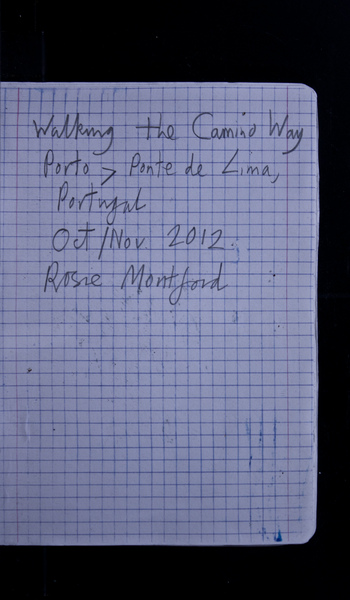 Walking the Camino Way
Porto > Ponte de Lima,
Portugal
Oct/Nov 2012.
Rosie Montford